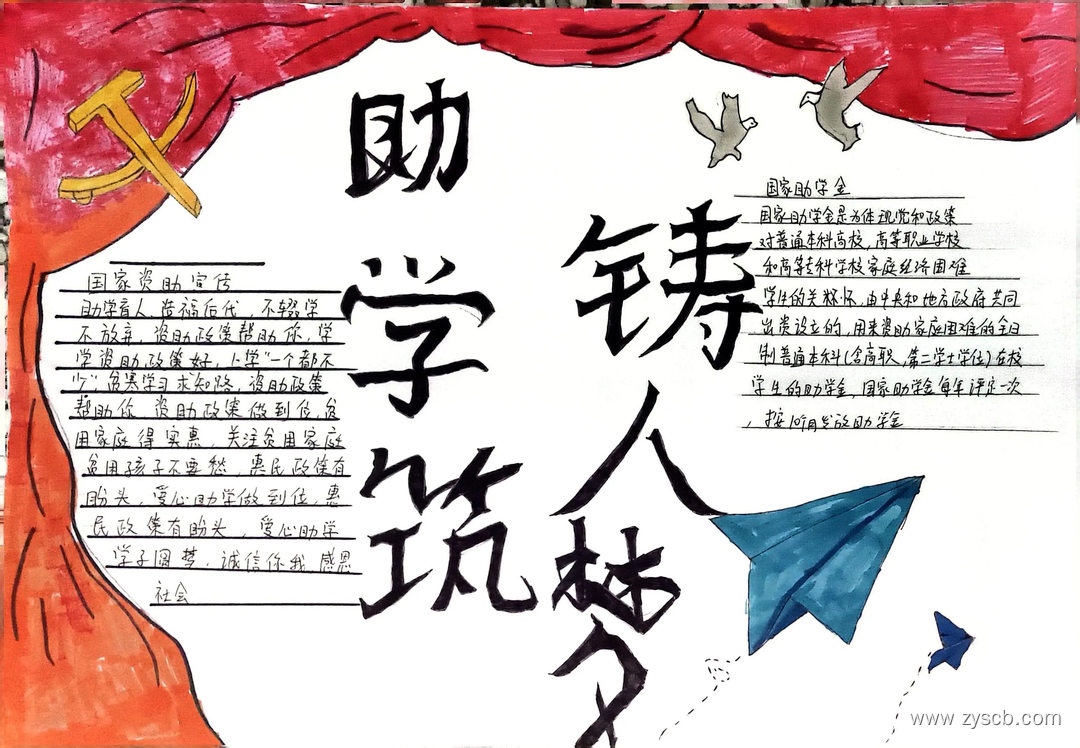 助学筑
铸人梦
国家资助宣传
助学育人 造福后代，不辍学
不放弃，资助政策帮助你，学
学资助政策好，上学"一个都不
少"，贫寒学习求知路，资助政策
帮助你 资助政策做到位，贫
困家庭得实惠，关注贫困家庭
贫困孩子不要愁，惠民政策有
盼头，爱心助学做到位，惠
民政策有盼头，爱心助学
学子圆梦，诚信你我 感恩
社会
国家助学金
国家助学金是为体现党和政策
对普通本科高校，高等职业学校
和高等专科学校家庭经济困难
学生的关怀，由中央和地方政府共同
出资设立的，用来资助家庭困难的全日
制普通本科(含高职、第二学士学位)在校
学生的助学金，国家助学金每年评定一次
，按10月发放助学金
www.zyscb.com